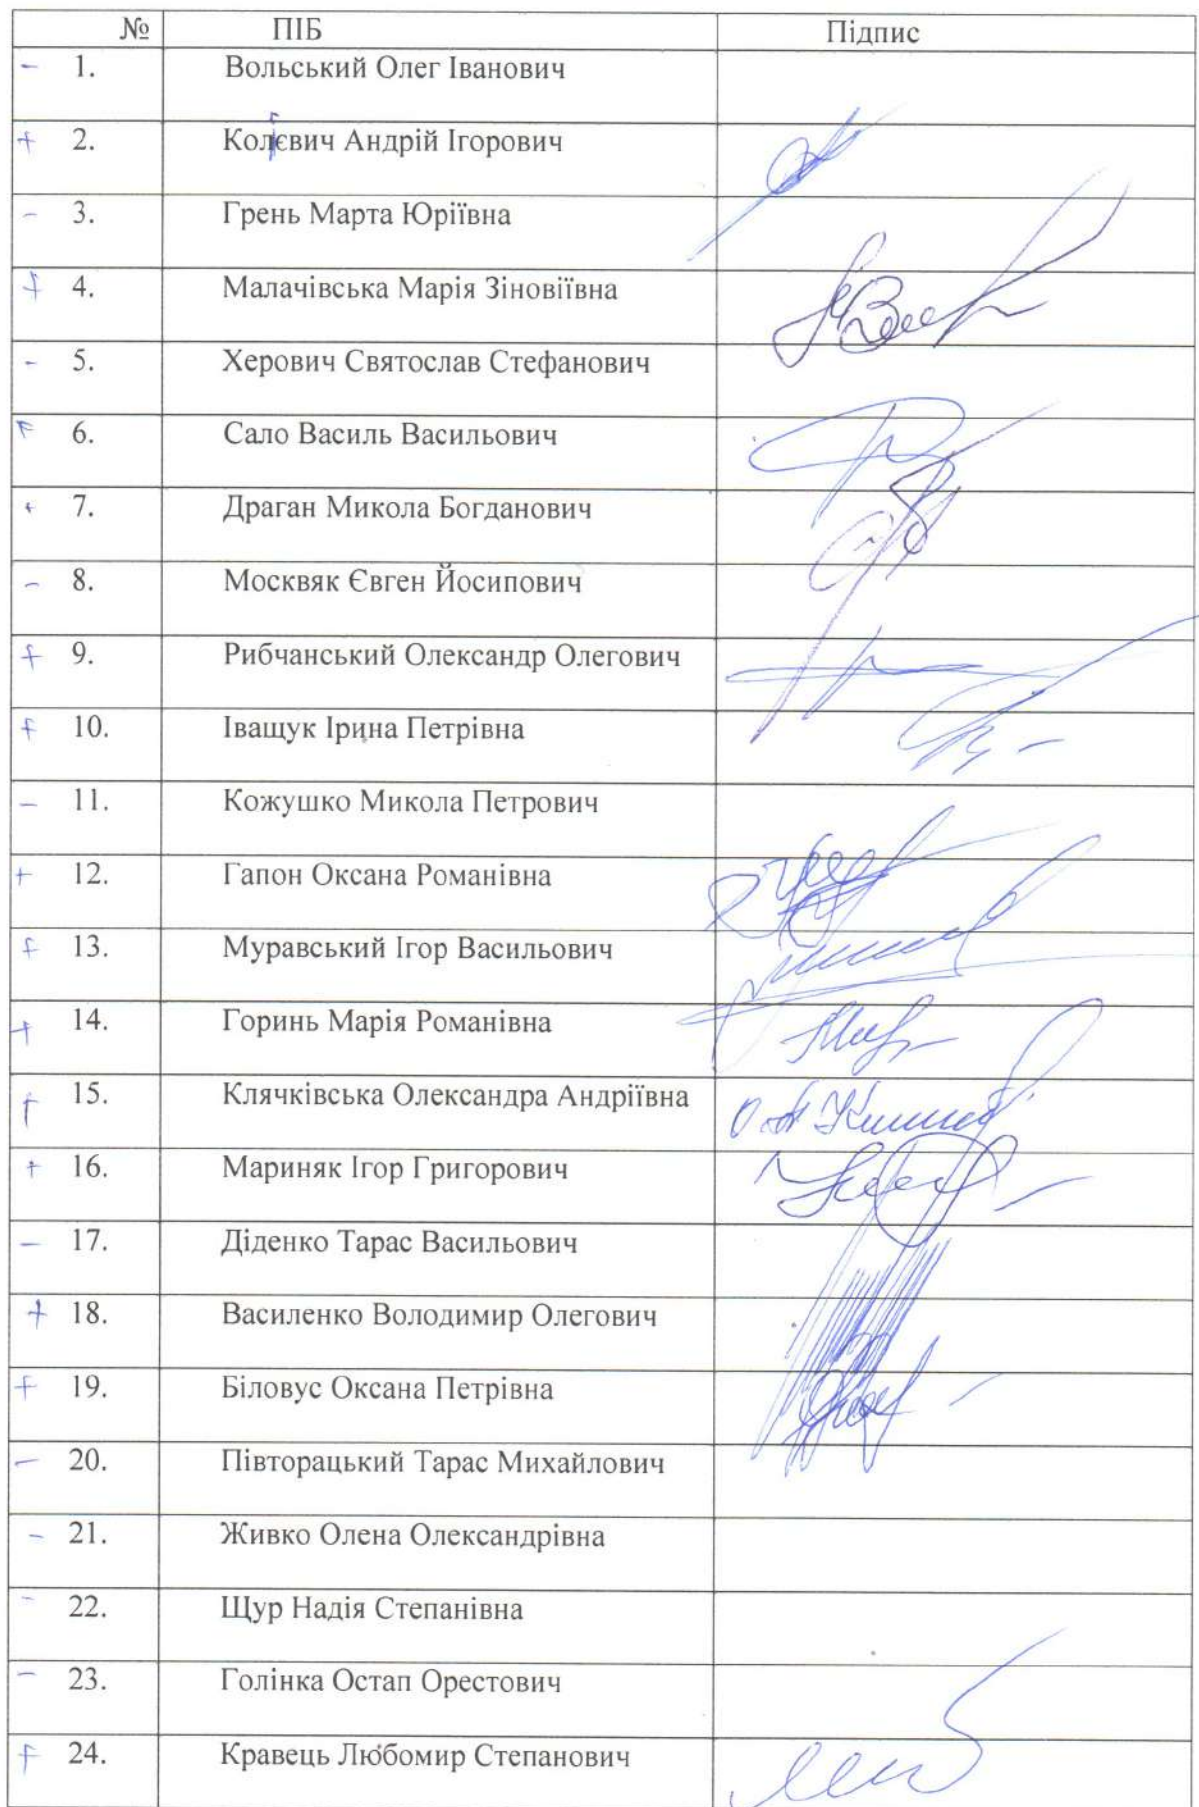 № ПІБ Підпис
- 1. Вольський Олег Іванович
+ 2. Колєвич Андрій Ігорович
- 3. Грень Марта Юріївна
+ 4. Малачівська Марія Зіновіївна
- 5. Херович Святослав Стефанович
+ 6. Сало Василь Васильович
+ 7. Драган Микола Богданович
- 8. Москвяк Євген Йосипович
+ 9. Рибчанський Олександр Олегович
+ 10. Іващук Ірина Петрівна
- 11. Кожушко Микола Петрович
+ 12. Гапон Оксана Романівна
+ 13. Муравський Ігор Васильович
+ 14. Горинь Марія Романівна
+ 15. Клячківська Олександра Андріївна
+ 16. Мариняк Ігор Григорович
- 17. Діденко Тарас Васильович
+ 18. Василенко Володимир Олегович
+ 19. Біловус Оксана Петрівна
- 20. Півторацький Тарас Михайлович
- 21. Живко Олена Олександрівна
- 22. Щур Надія Степанівна
- 23. Голінка Остап Орестович
+ 24. Кравець Любомир Степанович